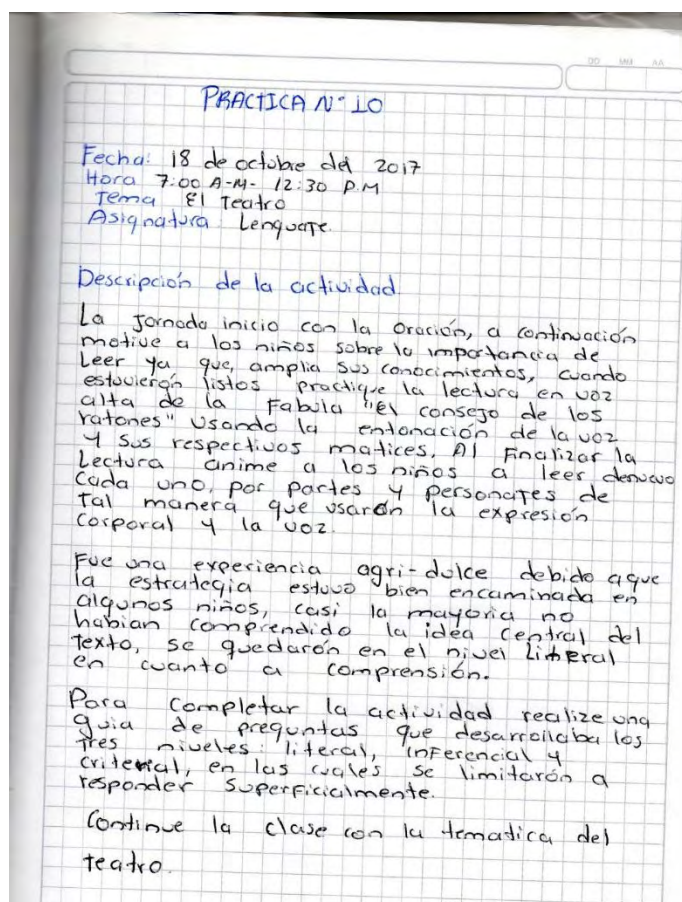 DD MM AA
PRACTICA N° 10
Fecha: 18 de octubre del 2017
Hora 7:00 A-M- 12:30 P.M
Tema El Teatro
Asignatura Lenguaje.
Descripción de la actividad.
La Jornada inicio con la Oración, a continuación
motive a los niños sobre la importancia de
Leer ya que, amplia sus conocimientos, cuando
estuvierón listos practique la lectura en voz
alta de la Fabula "El consejo de los
ratones" Usando la entonación de la voz
y sus respectivos matices. Al Finalizar la
Lectura anime a los niños a leer denuevo
Cada uno, por partes y personajes de
Tal manera que usarón la expresión
Corporal y la voz.
Fue una experiencia agri-dulce debido aque
la estrategia estuvo bien encaminada en
algunos niños, casi la mayoria no
habian comprendido la idea central del
Texto, se quedarón en el nivel Literal
en cuanto a comprensión.
Para Completar la actividad realize una
guia de preguntas que desarrollaba los
Tres niveles: literal, inFerencial y
criterial, en las cuales se limitarón a
responder Superficialmente.
Continue la clase con la tematica del
teatro.